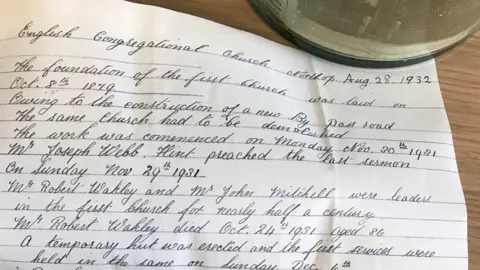 English Congregational Church Aug 28. 1932
The foundation of the first Church was laid on
Oct. 8th 1879
Owing to the construction of a new By Pass road
The same Church had to be demolished
The work was commenced on Monday Nov. 30th 1931
Mr Joseph Webb. Flint preached the last sermon
On Sunday Nov 29th 1931.
Mr Robert Wakley and Mr John Mitchell were leaders
in the first Church for nearly half a century
Mr Robert Wakley died Oct. 24th 1931 aged 86
A temporary hut was erected and the first services were
held in the same on Sunday Dec 6th